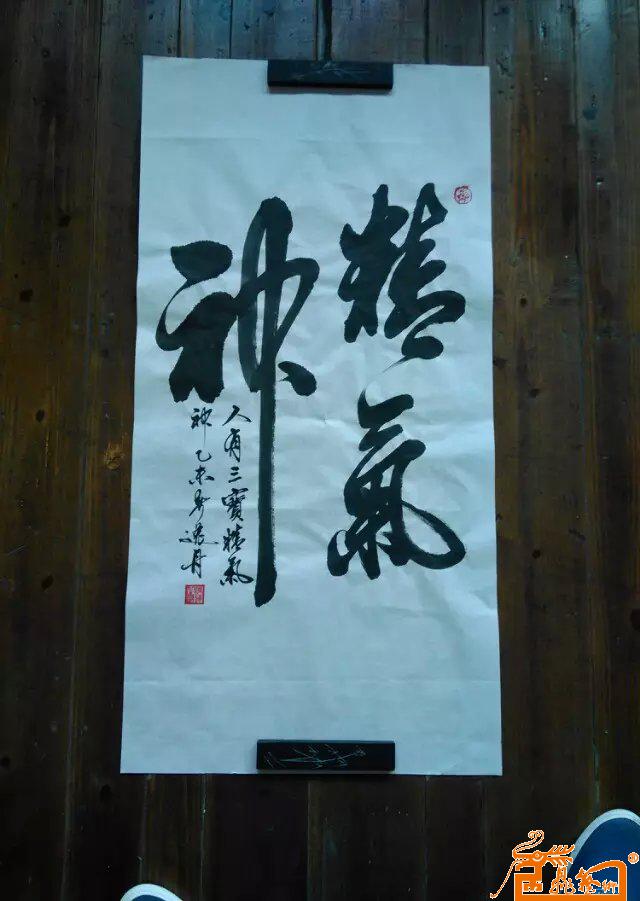 精氣
神
人有三寶精氣
神乙未年